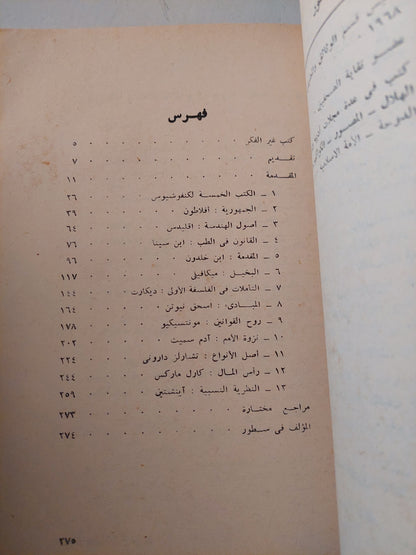 فهرس
كتب غير الفكر . . . . . . . . ٥
تقديم . . . . . . . . . . ٧
المقدمة . . . . . . . . . . ١١
١ ـ الكتب الخمسة لكنفوشيوس . . . . . ٢٦
٢ ـ الجمهورية : أفلاطون . . . . . . ٣٩
٣ ـ أصول الهندسة : اقليدس . . . . . ٦٤
٤ ـ القانون فى الطب : ابن سينا . . . . ٧٦
٥ ـ المقدمة : ابن خلدون . . . . . . ٩٦
٦ ـ البخيل : ميكافيلى . . . . . . ١١٧
٧ ـ التاملات فى الفلسفة الأولى : ديكارت . . ١٤٤
٨ ـ المبادىء : اسحق نيوتن . . . . . ١٦٤
٩ ـ روح القوانين : مونتسيكيو . . . . ١٧٨
١٠ ـ نزوة الأمم : آدم سميث . . . . . ٢٠٢
١١ ـ أصل الأنواع : تشارلز دارونى . . . . ٢٢٤
١٢ ـ رأس المال : كارل ماركس . . . . ٢٤٤
١٣ ـ النظرية النسبية : آينشتين . . . . ٢٥٩
مراجع مختارة . . . . . . . . ٢٧٣
المؤلف فى سطور . . . . . . . . ٢٧٤
٢٧٥
١٩٦٨
عضو نقابة الصحفيين
كتب فى عدة مجلات
الهلال ـ المصور ـ